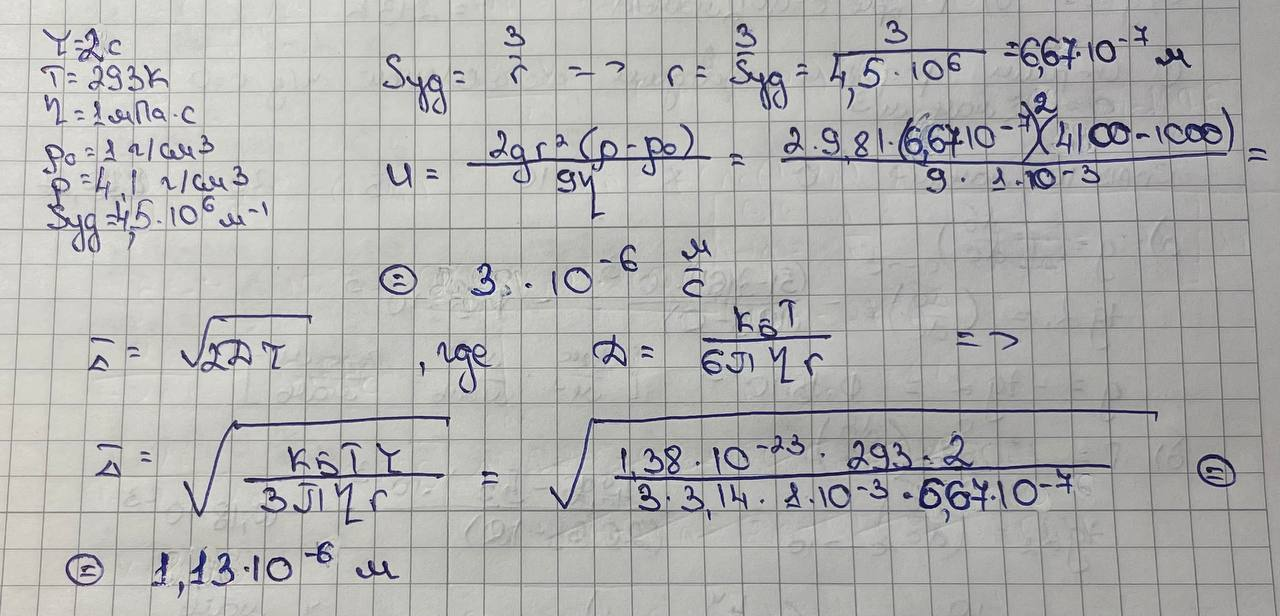 τ=2c
T=293K
η=1мПа·с
ρ₀=1 г/см³
ρ=4,1 г/см³
Sуд=4,5·10⁶ м⁻¹
Sуд = 3/r => r = 3/Sуд = 3/(4,5·10⁶) =6,67·10⁻⁷ м
U = 2gr²(ρ-ρ₀)/9η = 2·9,81·(6,67·10⁻⁷)²(4100-1000)/(9·1·10⁻³) =
⊜ 3,·10⁻⁶ м/с
Δ̅ = √(2Dτ) , где D = kБT/(6πηr) =>
Δ̅ = √(kБTτ/(3πηr)) = √(1,38·10⁻²³·293·2/(3·3,14·1·10⁻³·6,67·10⁻⁷)) ⊜
⊜ 1,13·10⁻⁶ м